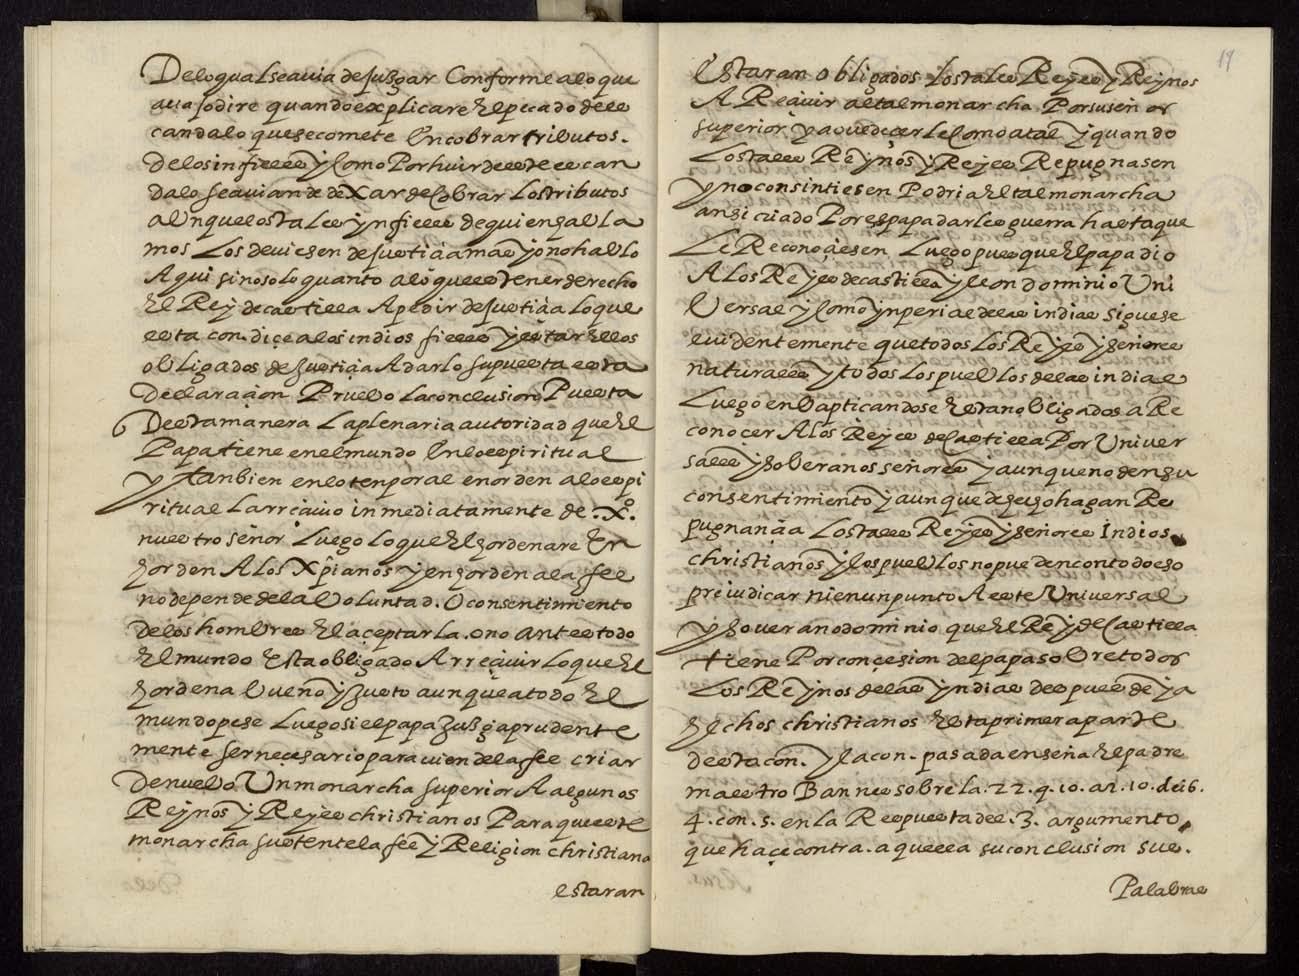 De lo qual se auia de juzgar Conforme a lo que
aua jo dire quando explicare el pecado de es
candalo que se comete En cobrar tributos.
de los infieles y Como Por huir de este escan
dalo se auian de deXar de Cobrar Los tributos
aUnque los tales ynfieles de quien habla
mos Los deuiesen de justiçia mas yo no hablo
Aqui sino solo quanto a lo que es tener derecho
El Rey de castilla A pedir de justiçia Lo que
esta con. diçe a los indios fieles y estar Ellos
obligados de justiçia A darlo supuesta esta
Declaraçion PrueVo La conclusion Puesta
De esta manera La plenaria autoridad que El
Papa tiene en el mundo En lo espiritual
y tanbien en lo tenporal en orden a lo espi
ritual La rreçiuio inmediatamente de .Xº.
nuestro señor Luego lo que El hordenare En
horden A los Xpianos y en horden a la fee
no depende de la Voluntad. O consentimiento
de los hombres El aceptarla. o no antes todo
El mundo Esta obligado A rreçiuir Lo que El
hordena bueno y Justo aunque a todo El
mundo pese Luego si el papa Juzga prudente
mente ser neçesario para uien de la fee criar
De nueVo Un monarcha superior A algunos
Reynos y Reyes christianos Para que este
monarcha sustente la fee y Religion christiana
estaran
19
Estaran obligados Los tales Reyes y Reynos
A Reçiuir al tal monarcha Por su señor
superior y a ouedeçerle Como a tal y quando
Los tales Reynos y Reyes Repugnasen
y no consintiesen Podria El tal monarcha
ansi criado Por el papa darles guerra hasta que
Le Reconoçiesen Luego pues que El papa dio
A Los Reyes de castilla y leon dominio Uni
Versal y Como ynperial de las indias siguese
euidentemente que todos Los Reyes y señores
naturales y todos Los pueblos de las indias
Luego en bapticandose Estan obligados a Re
conoçer A los Reyes de Castilla Por Univer
sales y soberanos señores y aunque no den su
consentimiento y aunque de eso hagan Re
pugnançia Los tales Reyes y señores Indios
christianos y los pueblos no pueden con todo eso
prejudicar ni en un punto A este Universal
y soVerano dominio que El Rey de Castilla
tiene Por conçesion del papa sobre todos
Los Reynos de las yndias despues de ya
hechos christianos Esta primera parte
de esta con. y la con. pasada enseña El padre
maestro Bannes sobre la .22. q. 10. ar. 10. de i6.
4. con. s. en la Respuesta del. 3. argumento
que haçe contra. aquella su conclusion sus.
Palabras